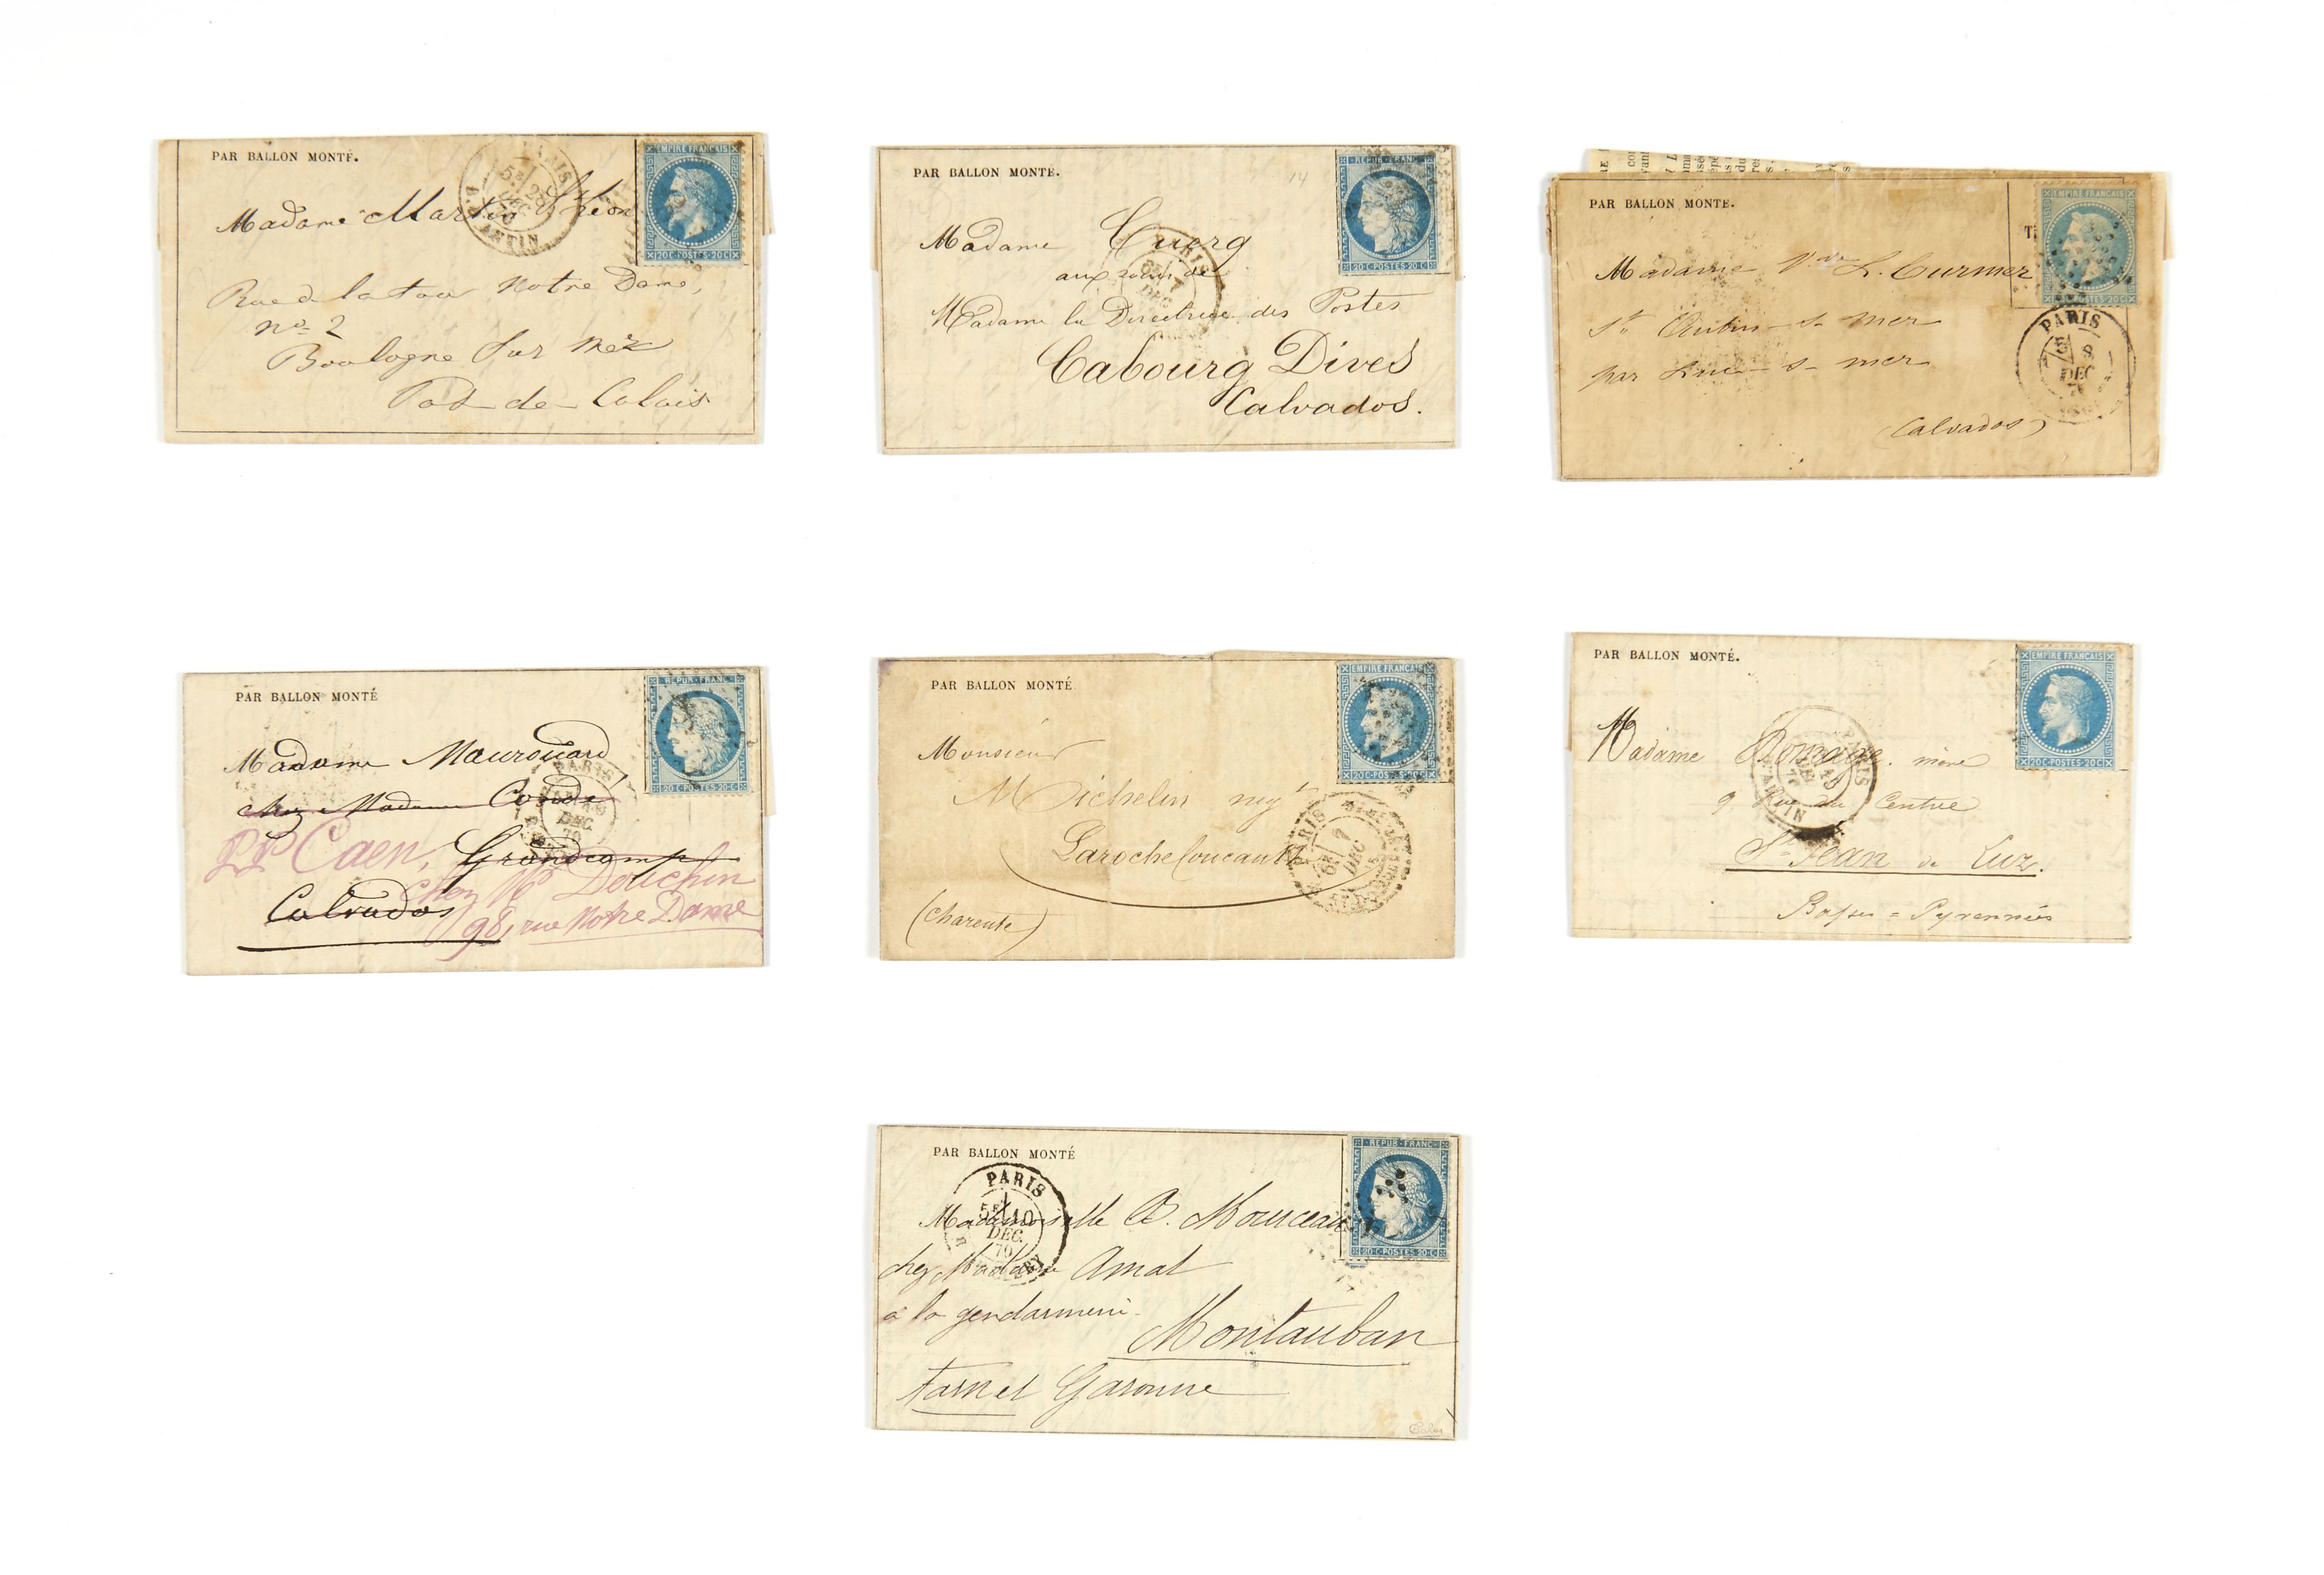 PAR BALLON MONTÉ.
PARIS
5E 28
DEC
70
B. D'ANTIN
EMPIRE FRANCAIS
20 C POSTES 20 C
Madame Martin Léon
Rue de la tour Notre Dame,
no 2
Boulogne sur Mer
Pas de Calais
PAR BALLON MONTÉ.
14
REPUB FRANC
20 C POSTES 20 C
Madame Cuerg
aux soins de
Madame la Directrice des Postes
Cabourg Dives
Calvados.
PARIS
7
DEC
PAR BALLON MONTÉ.
EMPIRE FRANCAIS
POSTES 20 C
Madame Vve L. Curmer
St Aubin s mer
par Luc s mer
(Calvados)
PARIS
8
DEC
PAR BALLON MONTÉ
REPUB FRANC
20 C POSTES 20 C
Madame Maurouard
chez Madame
PP Caen, Grandcamp
chez Md Douchin
Calvados
98, rue Notre Dame
PARIS
DEC
70
PAR BALLON MONTÉ
EMPIRE FRANCAIS
20 C POSTES 20 C
Monsieur
Michelin negt
Larochefoucault
(Charente)
PARIS
6E 7
DEC
PAR BALLON MONTÉ.
EMPIRE FRANCAIS
20 C POSTES 20 C
Madame Romage mère
9 Rue du Centre
St Jean de Luz.
Basses = Pyrennées
PAR BALLON MONTÉ
REPUB FRANC
20 C POSTES 20 C
PARIS
5E 10
DEC.
70
Mademoiselle A. Mourceau
chez Madame Amat
à la gendarmerie
Montauban
Tarn et Garonne
Calves